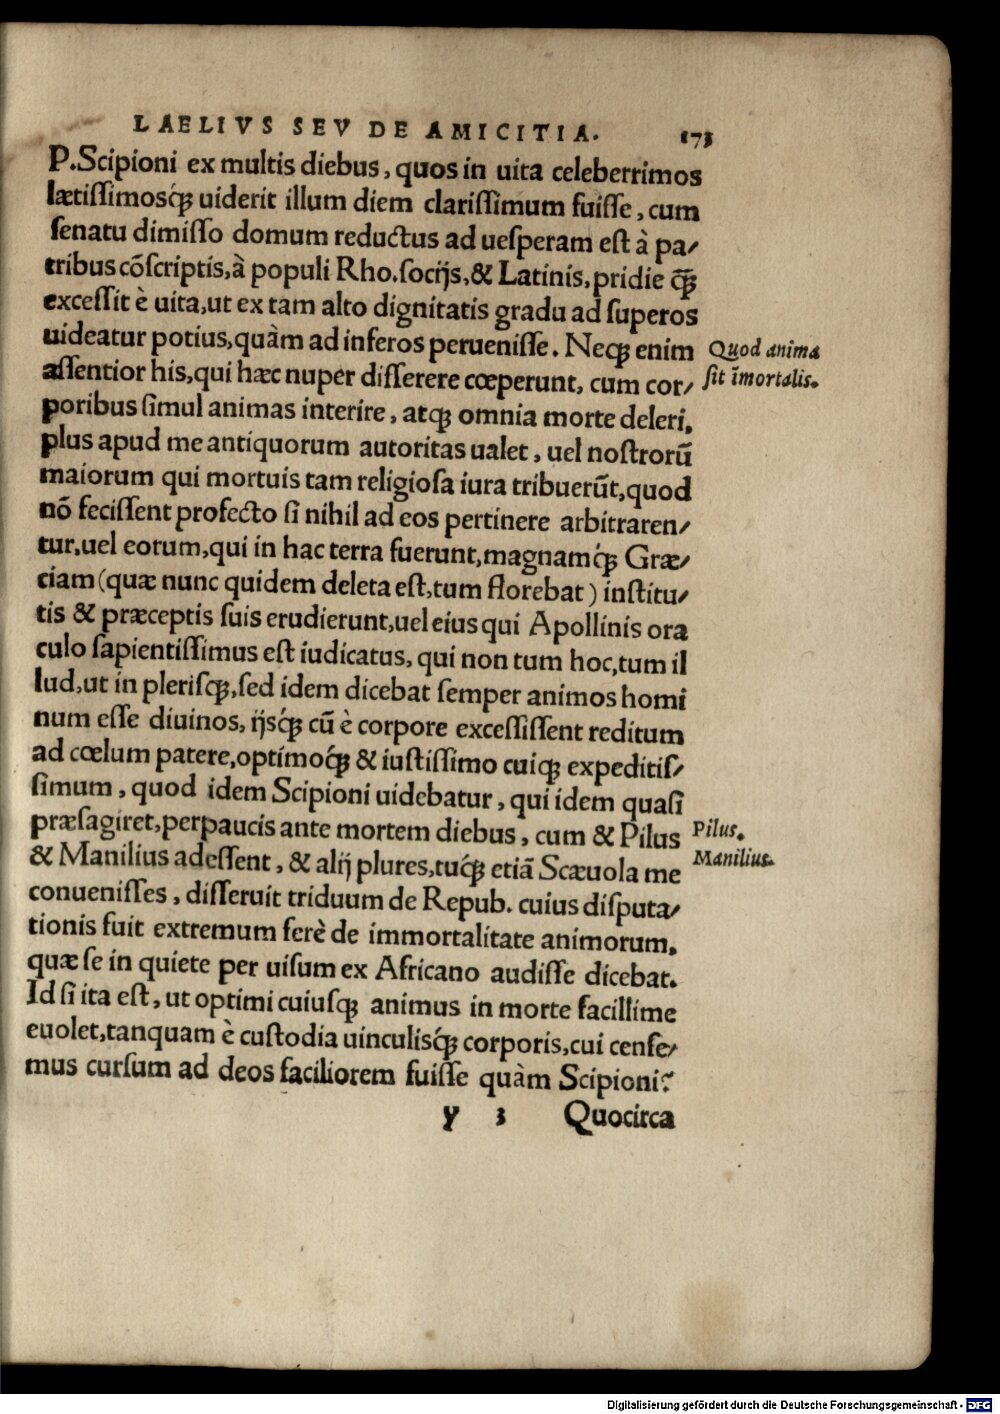 LAELIVS SEV DE AMICITIA. 173
P. Scipioni ex multis diebus, quos in uita celeberrimos
lætissimosq́ꝫ uiderit illum diem clarissimum fuisse, cum
senatu dimisso domum reductus ad uesperam est à pa/
tribus cõscriptis, à populi Rho. socijs, & Latinis, pridie q̃ꝫ
excessit è uita, ut ex tam alto dignitatis gradu ad superos
uideatur potius, quàm ad inferos peruenisse. Neqꝫ enim
Quod anima
assentior his, qui hæc nuper disserere cœperunt, cum cor/
sit ĩmortalis.
poribus simul animas interire, atqꝫ omnia morte deleri.
plus apud me antiquorum autoritas ualet, uel nostrorũ
maiorum qui mortuis tam religiosa iura tribuerũt, quod
nõ fecissent profecto si nihil ad eos pertinere arbitraren/
tur. uel eorum, qui in hac terra fuerunt, magnamq́ꝫ Græ/
ciam (quæ nunc quidem deleta est, tum florebat) institu/
tis & præceptis suis erudierunt, uel eius qui Apollinis ora
culo sapientissimus est iudicatus, qui non tum hoc, tum il
lud, ut in plerisqꝫ, sed idem dicebat semper animos homi
num esse diuinos, ijsq́ꝫ cũ è corpore excessissent reditum
ad cœlum patere, optimoq́ꝫ & iustissimo cuiqꝫ expeditis/
simum, quod idem Scipioni uidebatur, qui idem quasi
præsagiret, perpaucis ante mortem diebus, cum & Pilus
Pilus.
& Manilius adessent, & alij plures, tuq́ꝫ etiã Scæuola me
Manilius.
conuenisses, disseruit triduum de Repub. cuius disputa/
tionis fuit extremum ferè de immortalitate animorum.
quæ se in quiete per uisum ex Africano audisse dicebat.
Id si ita est, ut optimi cuiusqꝫ animus in morte facillime
euolet, tanquam è custodia uinculisq́ꝫ corporis, cui cense/
mus cursum ad deos faciliorem fuisse quàm Scipioni?
y 3 Quocirca
Digitalisierung gefördert durch die Deutsche Forschungsgemeinschaft - DFG